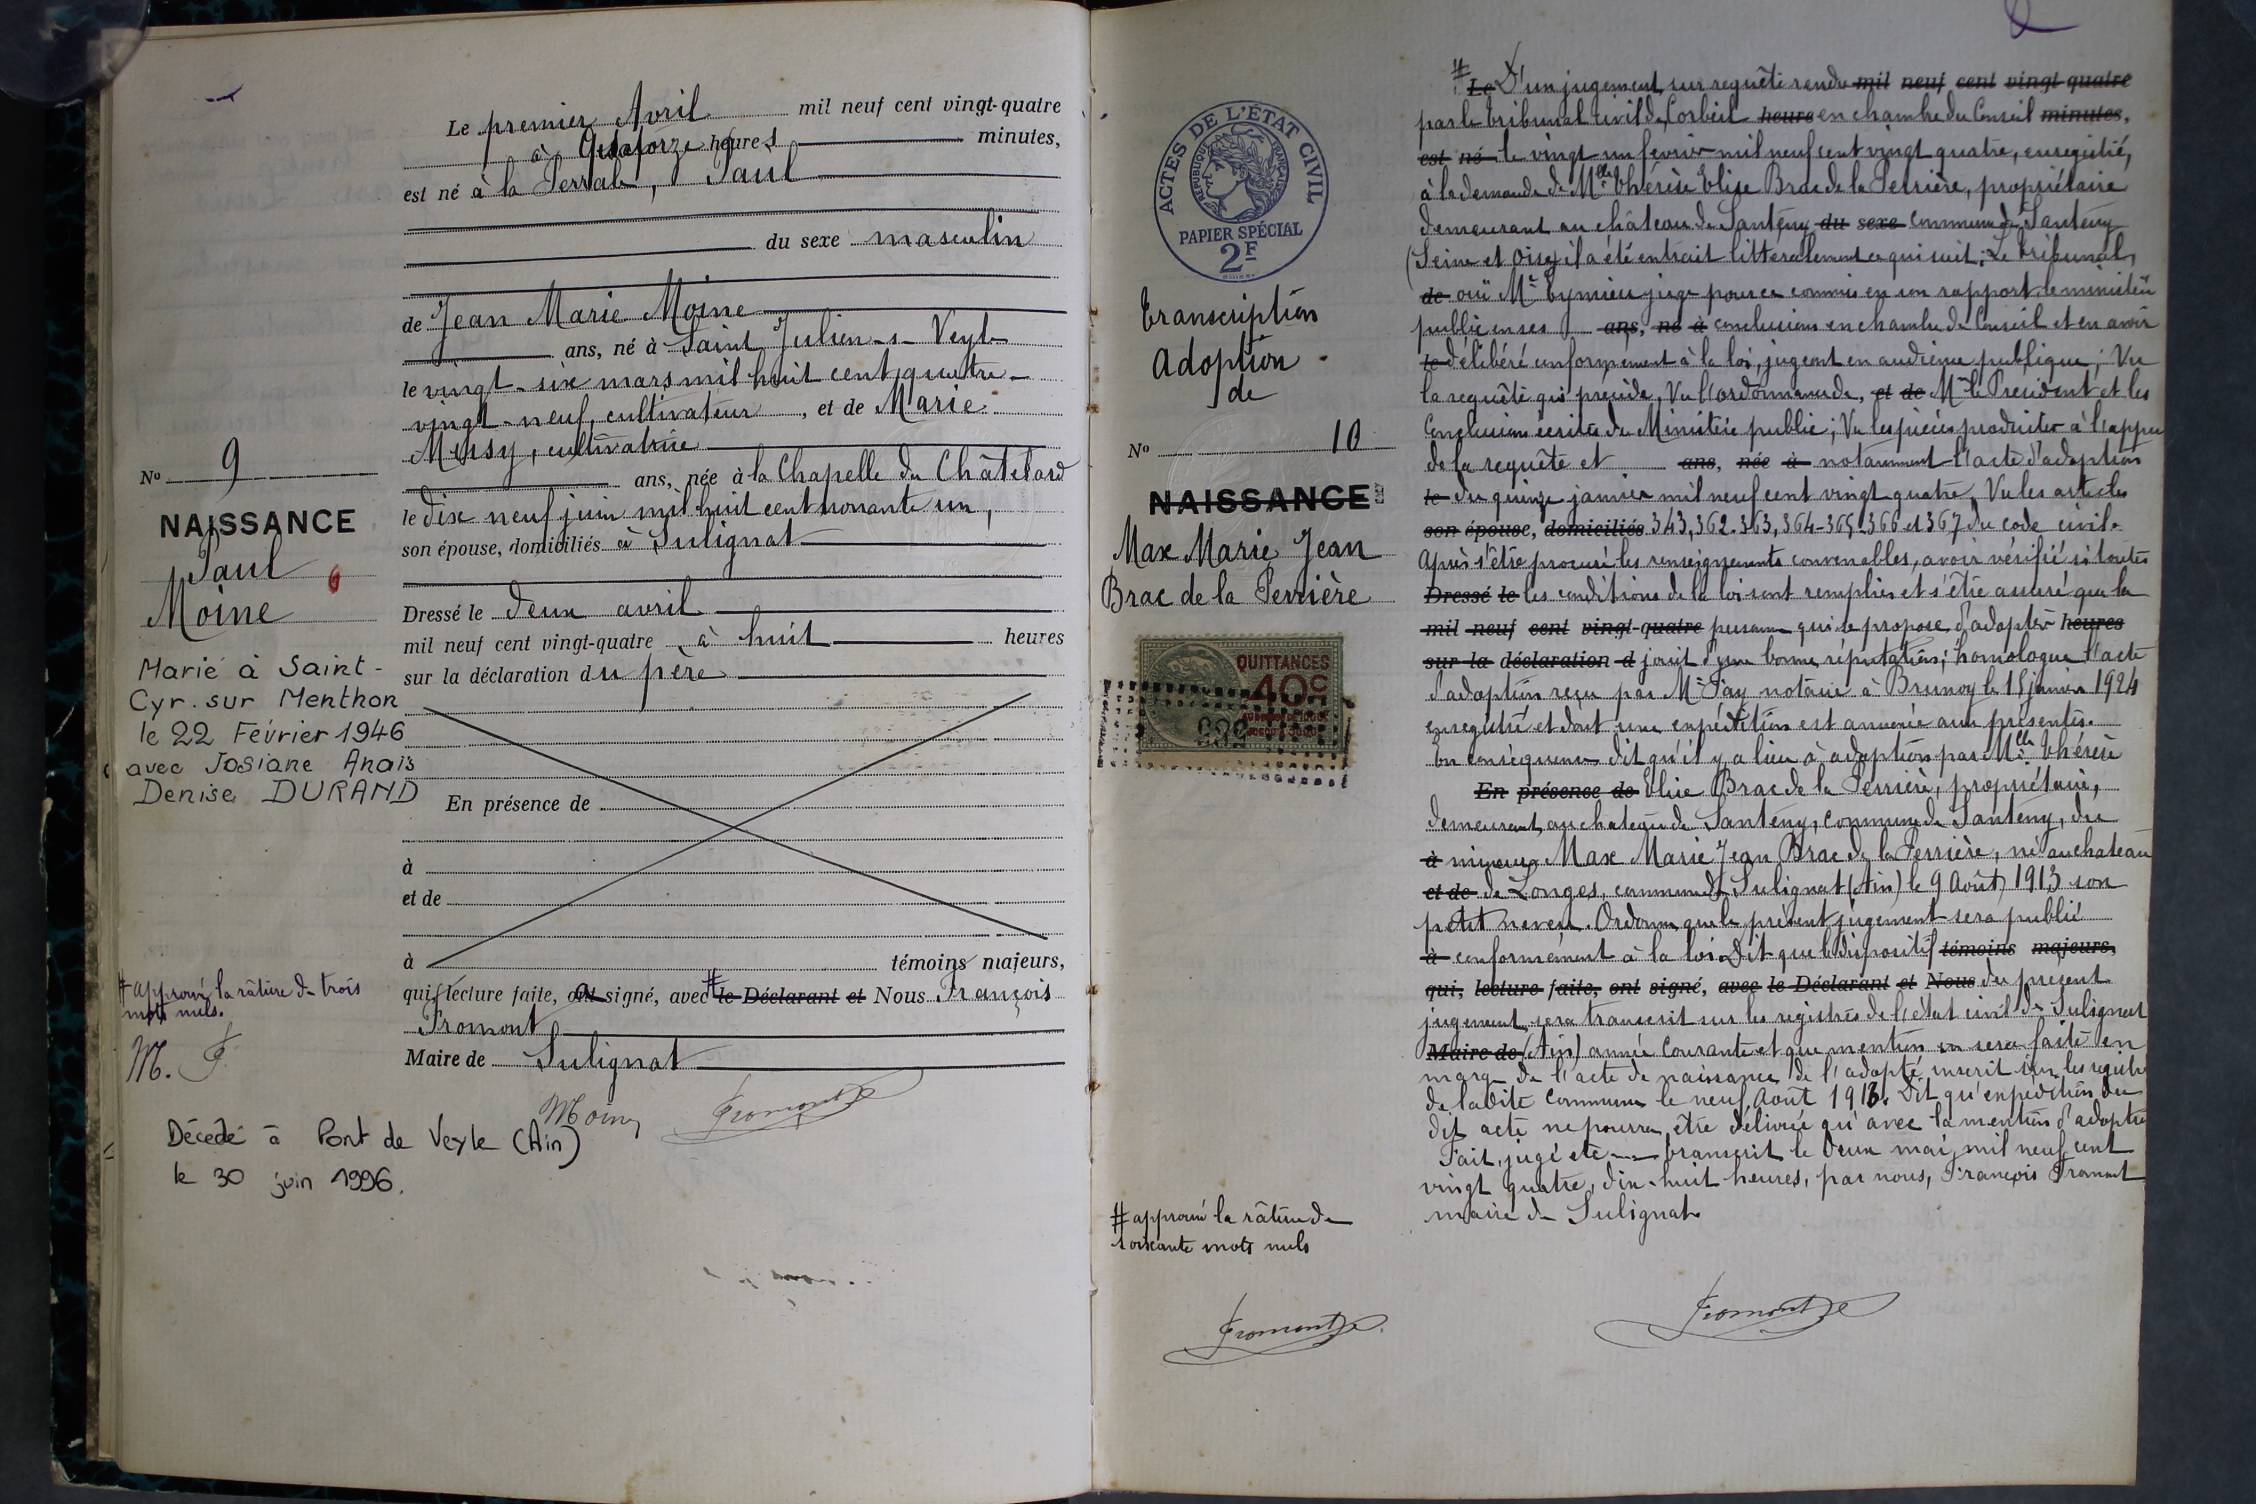 Le premier Avril mil neuf cent vingt-quatre
à quatorze heures minutes,
est né à la Serrale, Paul
du sexe masculin
de Jean Marie Moine
ans, né à Saint Julien-s-Veyle
le vingt-six mars mil huit cent quatre-
vingt-neuf, cultivateur, et de Marie
cultivatrice
ans, née à la Chapelle du Châtelard
le dix neuf juin mil huit cent nonante un,
son épouse, domiciliés à Sulignat
Dressé le deux avril
mil neuf cent vingt-quatre à huit heures
sur la déclaration du père
En présence de
à
et de
à témoins majeurs,
qui, lecture faite, a signé, avec # le Déclarant et Nous François
Fromont
Maire de Sulignat
Moine Fromont
No 9
NAISSANCE
Paul
Moine
6
Marié à Saint-
Cyr. sur Menthon
le 22 Février 1946
avec Josiane Anaïs
Denise DURAND
# approuvé la râture de trois
mots nuls.
M. F
Décédé à Pont de Veyle (Ain)
le 30 juin 1996.
ACTES DE L'ÉTAT CIVIL
RÉPUBLIQUE FRANÇAISE
PAPIER SPÉCIAL
2F
transcription
Adoption
de
No 10
NAISSANCE
Max Marie Jean
Brac de la Perrière
QUITTANCES
40c
# approuvé la râture de
soixante mots nuls
Fromont
# Le D'un jugement sur requête rendu mil neuf cent vingt-quatre
par le tribunal civil de Corbeil heure en chambre du Conseil minutes,
est né le vingt un février mil neuf cent vingt quatre, enregistré,
à la demande de Melle Thérèse Elise Brac de la Perrière, propriétaire
demeurant au château de Santeny du sexe commune de Santeny
(Seine et Oise) il a été extrait littéralement ce qui suit: Le tribunal,
de ouï Mr juge pour ce commis en son rapport, le ministère
public en ses ans, né à conclusions en chambre du Conseil et en avoir
le délibéré conformément à la loi, jugeant en audience publique; Vu
la requête qui précède, Vu l'ordonnance de, et de Mr le Président et les
Conclusions écrites du Ministère public; Vu les pièces produites à l'appui
de la requête et ans, née à notamment l'acte d'adoption
le du quinze janvier mil neuf cent vingt quatre, Vu les articles
son épouse, domiciliés 343, 362. 363, 364-365, 366 et 367 du code civil.
Après s'être procuré les renseignements convenables, avoir vérifié si toutes
Dressé le les conditions de la loi sont remplies et s'être assuré que la
mil neuf cent vingt-quatre personne qui se propose d'adopter heures
sur la déclaration d jouit d'une bonne réputation; homologue l'acte
d'adoption reçu par Me Fay notaire à Brunoy le 15 janvier 1924
enregistré et dont une expédition est annexée aux présentes.
En conséquence dit qu'il y a lieu à adoption par Melle Thérèse
En présence de Elise Brac de la Perrière, propriétaire,
demeurant au chateau de Santeny, commune de Santeny, du
à mineur Max Marie Jean Brac de la Perrière, né au chateau
et de de Longes, commune de Sulignat (Ain) le 9 Août 1913 son
petit neveu. Ordonne que le présent jugement sera publié
à conformément à la loi. Dit que le dispositif témoins majeurs,
qui, lecture faite, ont signé, avec le Déclarant et Nous du présent
jugement sera transcrit sur les registres de l'état civil de Sulignat
Maire de (Ain) année courante et que mention en sera faite en
marge de l'acte de naissance de l'adopté inscrit sur les registres
de ladite commune le neuf Août 1913. Dit qu'expédition du
dit acte ne pourra être délivrée qu'avec la mention d'adoption
Fait, jugé etc transcrit le deux mai mil neuf cent
vingt quatre, dix-huit heures, par nous, François Fromont
maire de Sulignat
Fromont